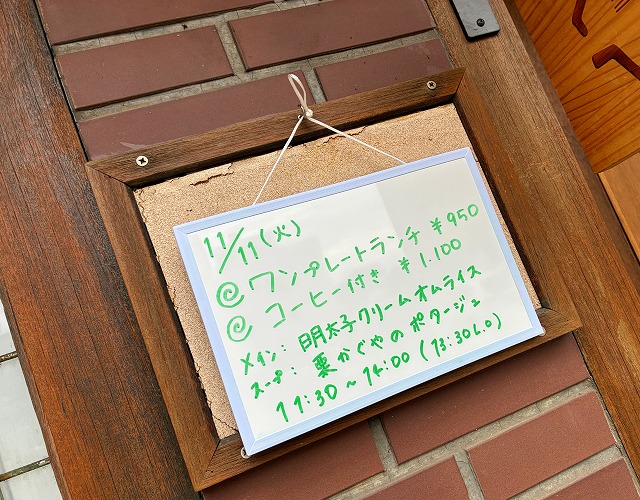 11/11(火)
@ ワンプレートランチ ¥950
@ コーヒー付き ¥1.100
メイン: 明太子クリームオムライス
スープ: 栗かぐやのポタージュ
11:30～14:00(13:30L.O)